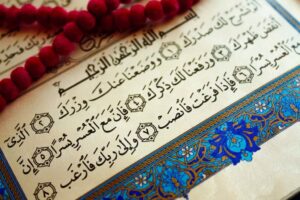 بِسْمِ اللَّهِ الرَّحْمَٰنِ الرَّحِيمِ
نَشْرَحْ لَكَ صَدْرَكَ ۝١ وَوَضَعْنَا عَنكَ وِزْرَكَ ۝٢ الَّذِي
أَنقَضَ ظَهْرَكَ ۝٣ وَرَفَعْنَا لَكَ ذِكْرَكَ ۝٤ فَإِنَّ مَعَ الْعُسْرِ يُسْرًا ۝٥ إِنَّ
الْعُسْرِ يُسْرًا ۝٦ فَإِذَا فَرَغْتَ فَانصَبْ ۝٧ وَإِلَىٰ رَبِّكَ فَارْغَب ۝٨